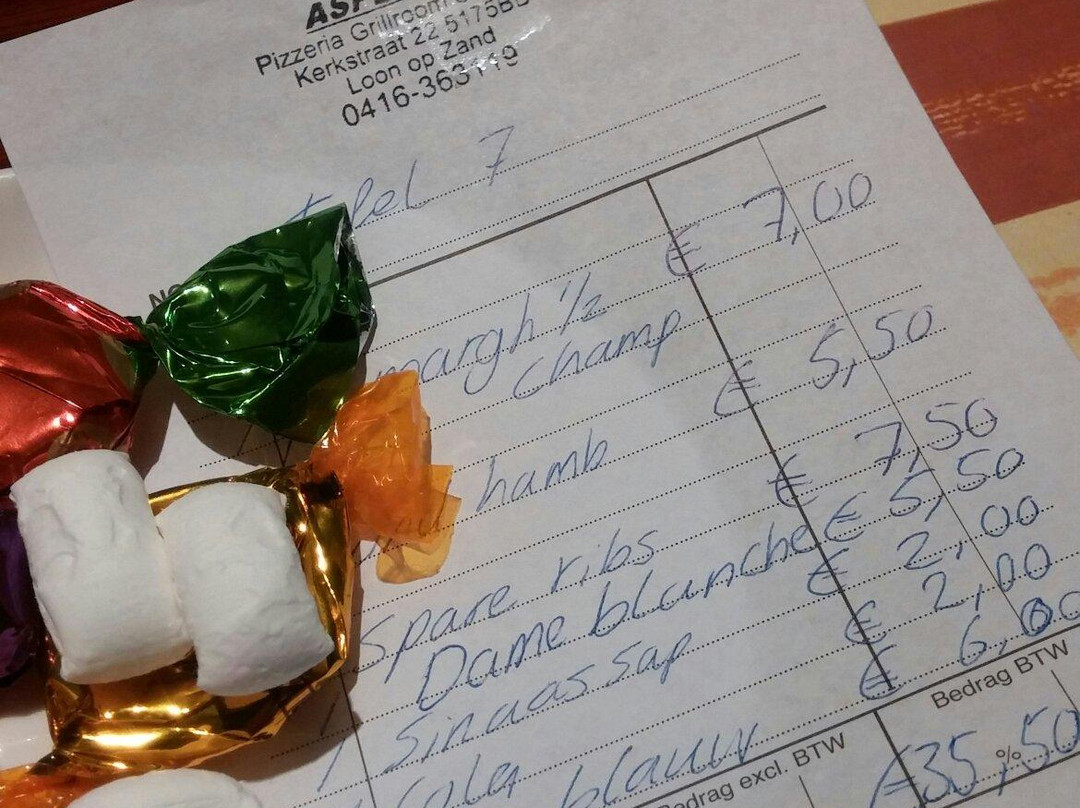 Pizzeria Grillroom
Kerkstraat 22 5175B
Loon op Zand
0416-363119
tafel 7
margh 1/2 € 7,00
champ
hamb € 5,50
Spare ribs € 7,50
Dame blanche € 5,50
1 Sinaassap € 2,00
cola € 2,00
blauw € 6,00
Bedrag excl. BTW
Bedrag BTW
€35,50
%